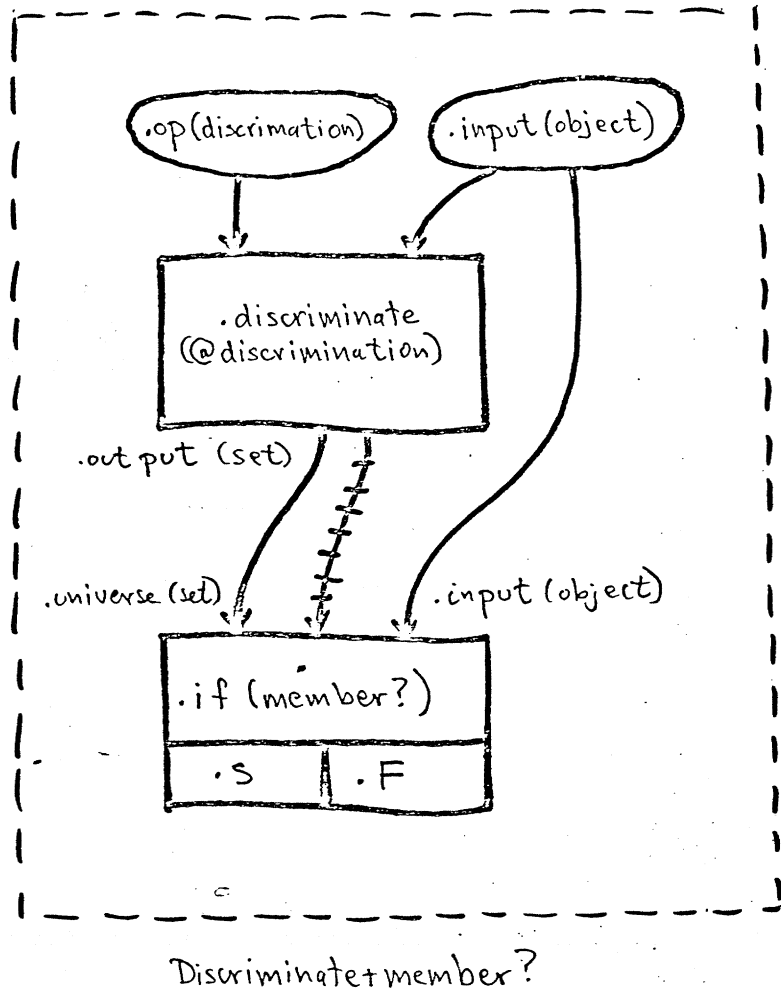 .op(discrimation)
.input(object)
.discriminate
(@discrimination)
.output (set)
.universe(set)
.input(object)
.if (member?)
.S
.F
Discriminate+member?